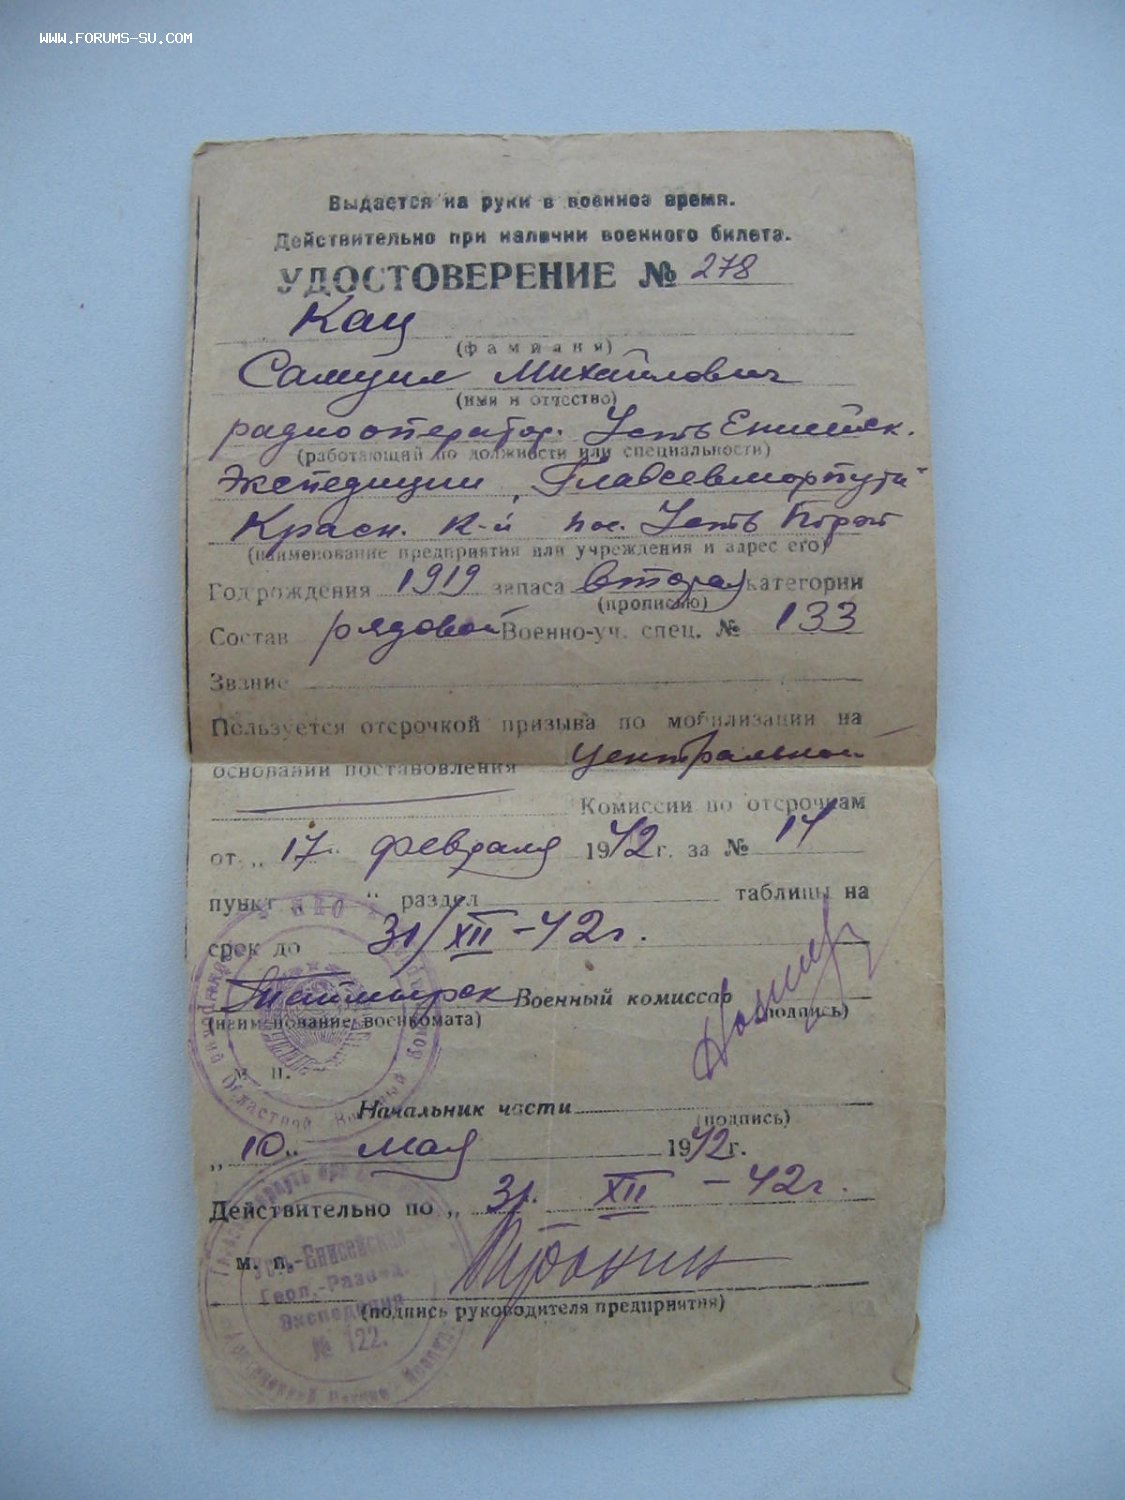 WWW.FORUMS-SU.COM
Выдается на руки в военное время.
Действительно при наличии военного билета.
УДОСТОВЕРЕНИЕ № 278
Кац
(фамилия)
Самуил Михайлович
(имя и отчество)
радиооператор. Усть Енисейск.
(работающий по должности или специальности)
Экспедиции „Главсевморпути"
Красн. к-й пос. Усть Порт
(наименование предприятия или учреждения и адрес его)
Год рождения 1919 запаса второй категории
(прописью)
Состав рядовой Военно-уч. спец. № 133
Звание
Пользуется отсрочкой призыва по мобилизации на
основании постановления Центральной
Комиссии по отсрочкам
от „ 17 " февраля 1942 г. за № 14
пункт „ " раздел таблицы на
срок до 31/XII-42г.
Таймырск Военный комиссар
(наименование военкомата) (подпись)
м. п.
Начальник части
(подпись)
„ 10 " мая 1942 г.
Действительно по „ 31. XII - 42г.
м. п.
(подпись руководителя предприятия)
НКО
Областной Военный
Усть-Енисейская
Геол.-Развед.
Экспедиция
№ 122.